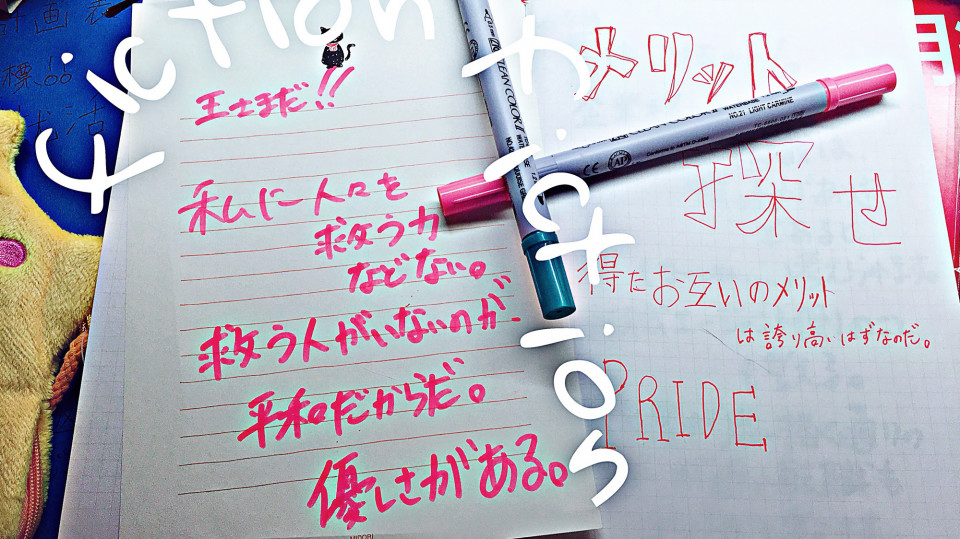 fiction
私に人々を
救う力
などない。
救う人がいないのが、
平和だからだ。
優しさがある。
MIDORI
メリット
探せ
得たお互いのメリット
は誇り高いはずなのだ。
PRIDE
CLEAN COLOR II
CLEAN COLOR II WATERBASE
NO.21 LIGHT CARMINE
CE
AP
Conforms to ASTM D-4236
計画表
月